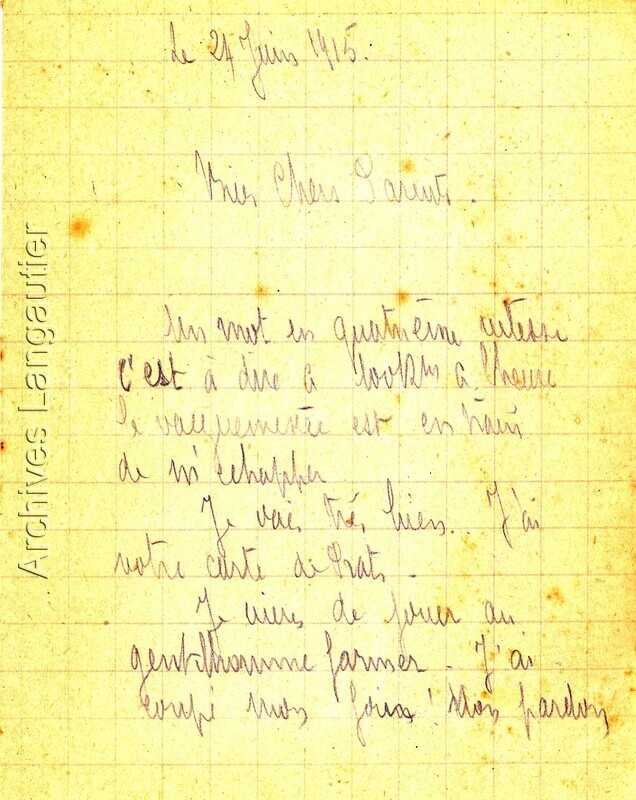 Le 24 Juin 1915.
Mes Chers Parents.
Un mot en quatrième vitesse
c'est à dire à 100 Kms à l'heure
Le vaguemestre est en train
de m'échapper
Je vais très bien. J'ai
votre carte de Prats.
Je viens de jouer au
gentilhomme farmer - J'ai
coupé mon foin! Non pardon
Archives Langautier